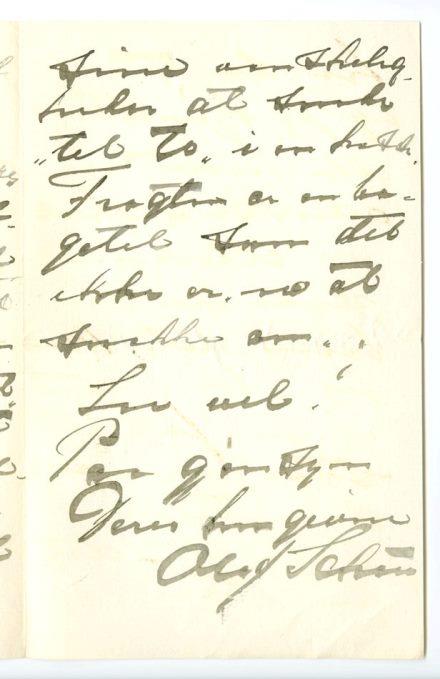 sine omstændig-
heder at sende
"tel to" i en kasse.
Fragten er en ba-
gatel som det
ikke er no at
snakke om..
Lev vel!
Paa gjensyn
Deres hengivne
Olaf